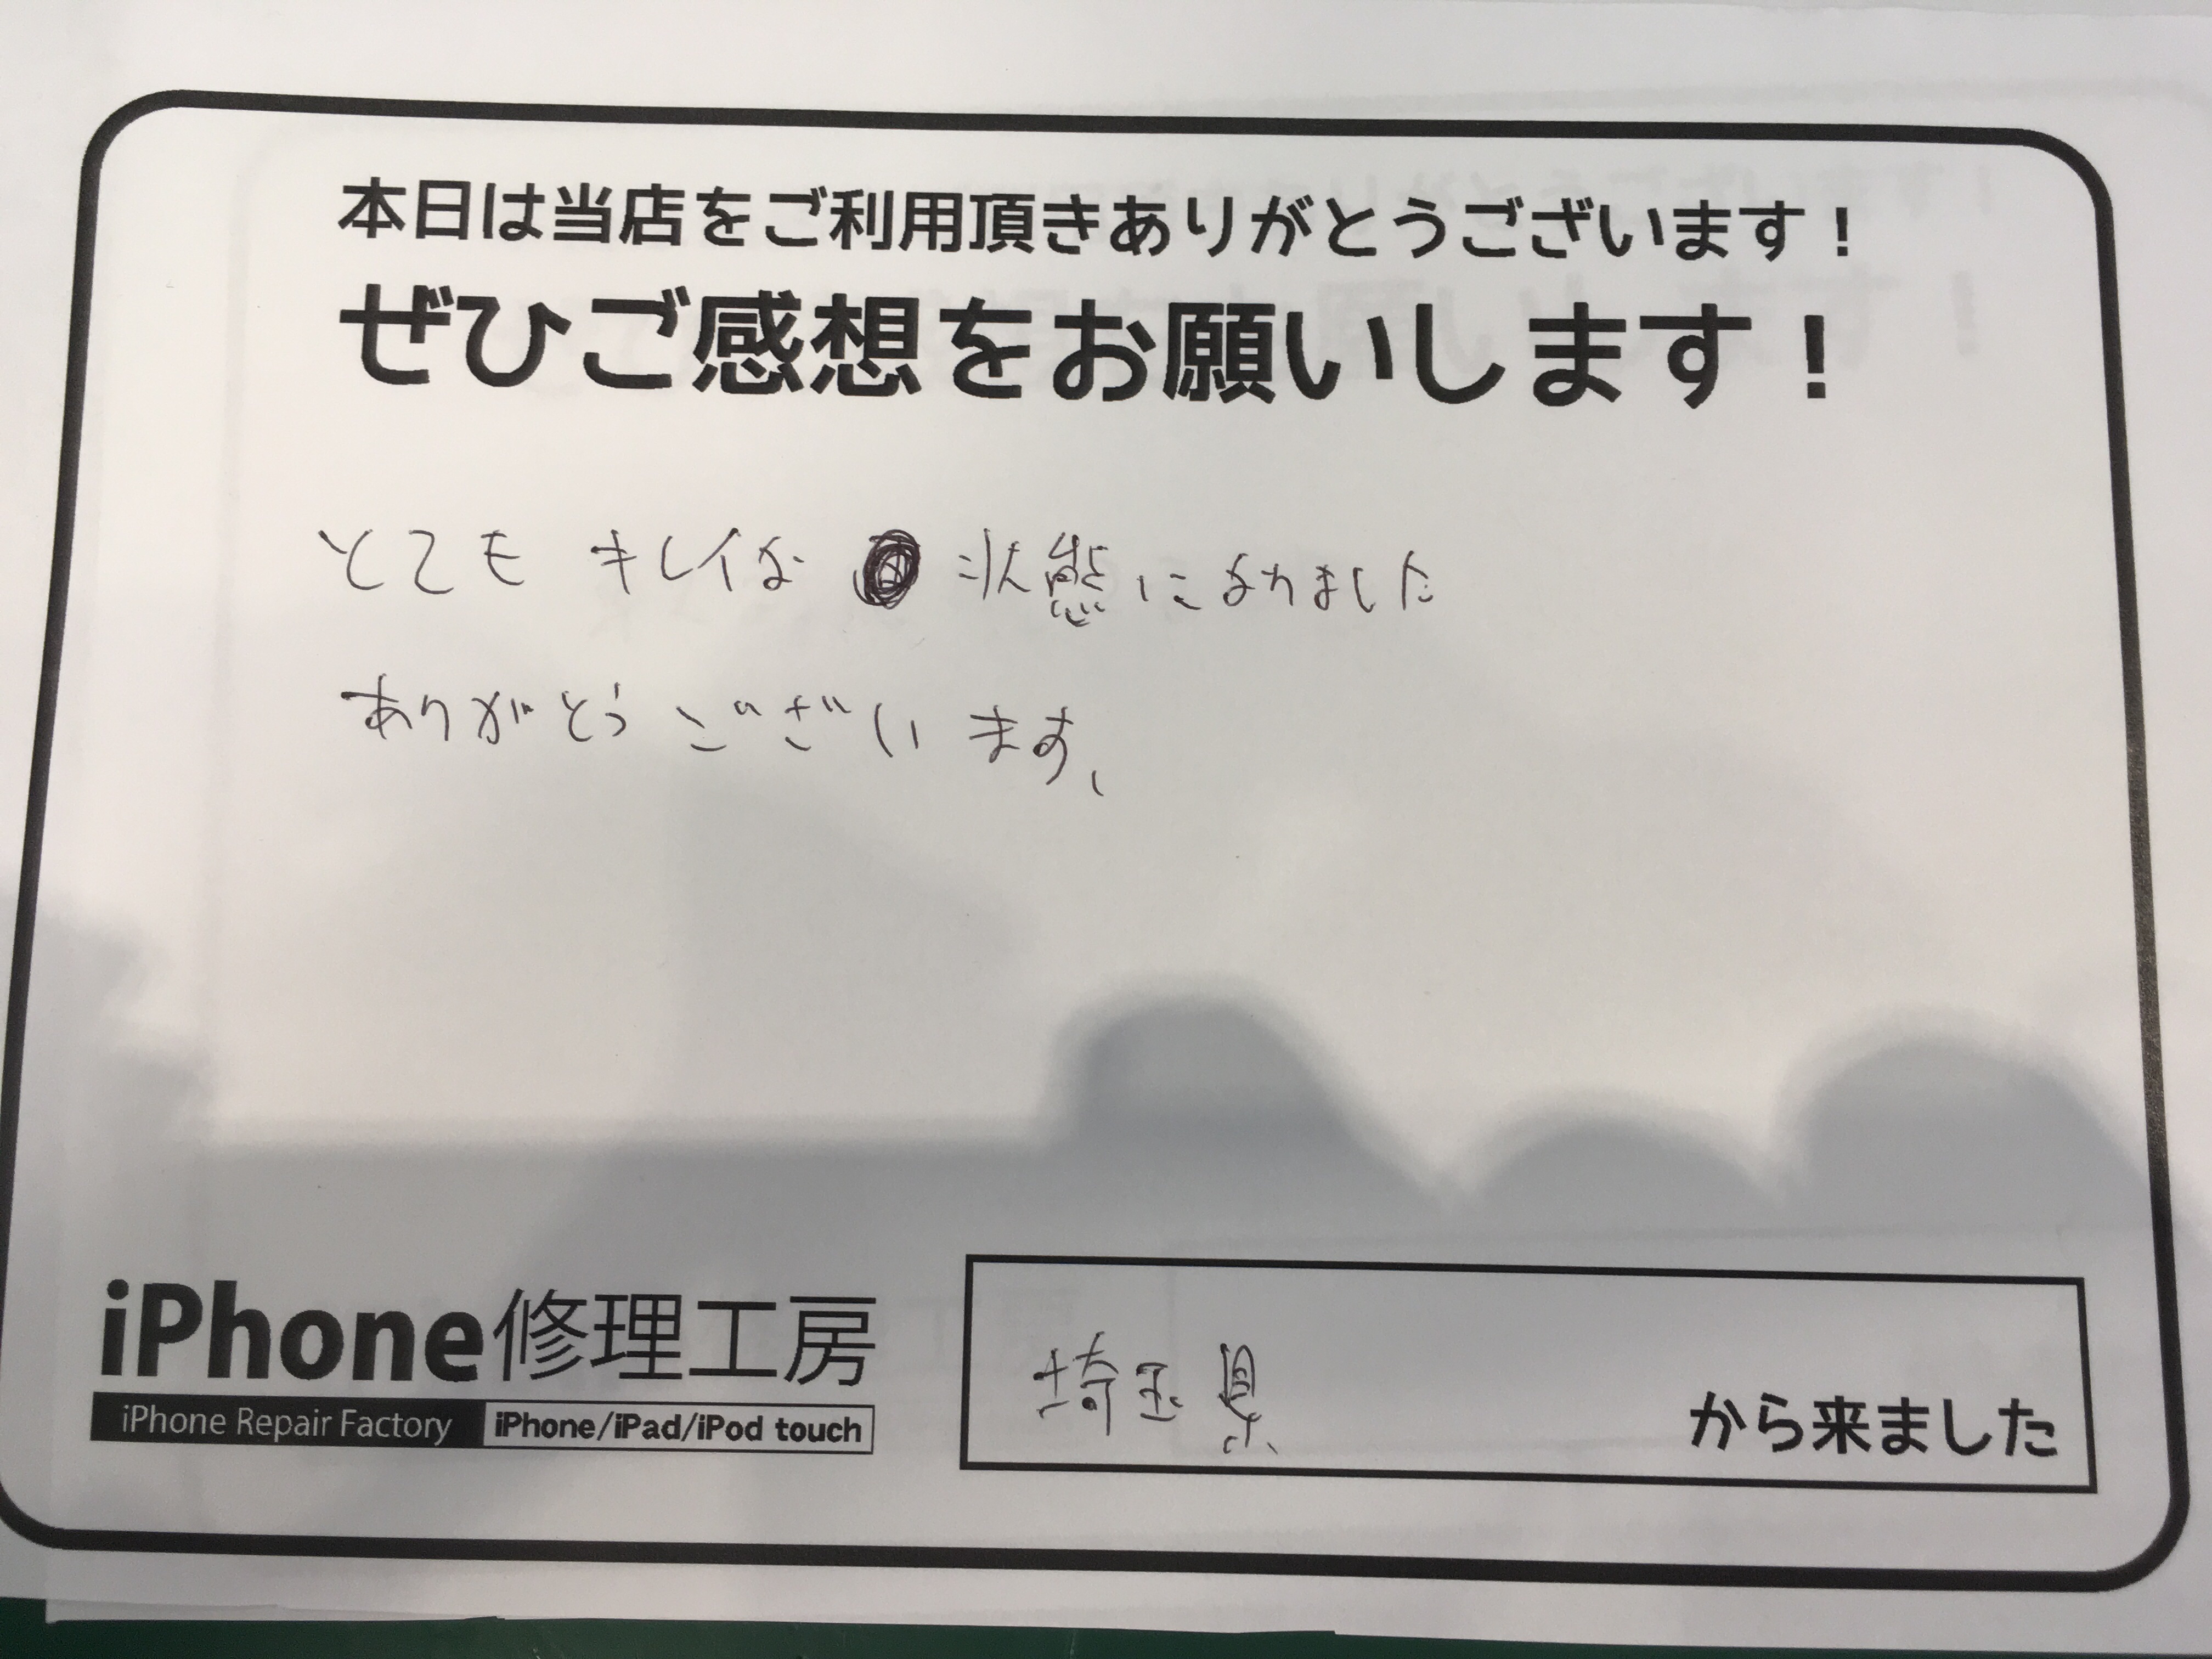 本日は当店をご利用頂きありがとうございます！
ぜひご感想をお願いします！
とても キレイな 状態になりました
ありがとうございます、
iPhone修理工房
iPhone Repair Factory iPhone/iPad/iPod touch
埼玉県 から来ました